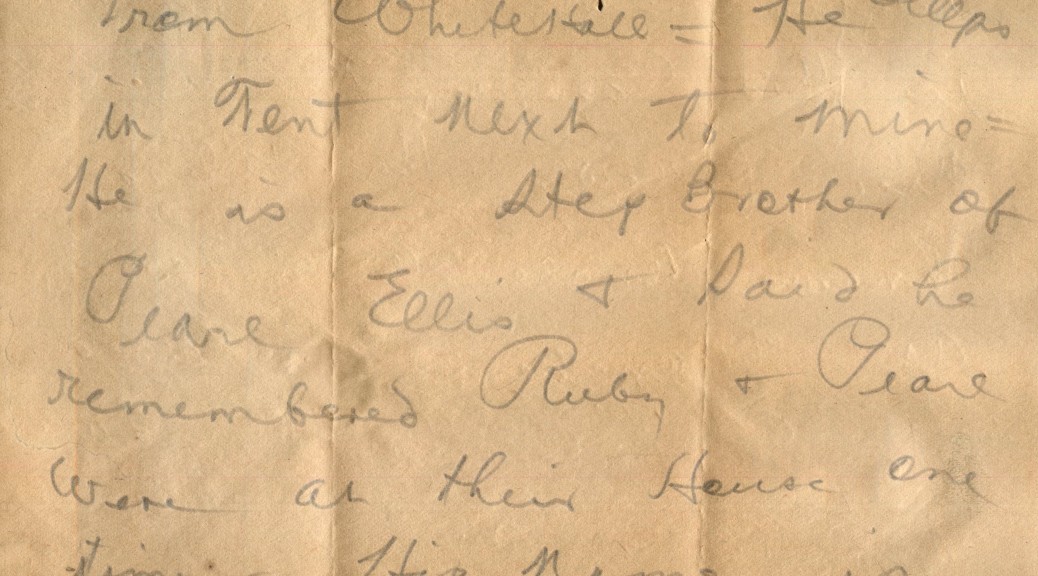 from WhiteHall = He sleeps
in Tent Next To mine =
He is a Step Brother of
Pearl Ellis + Said he
remembered Ruby + Pearl
Were at their House one
time His Name is